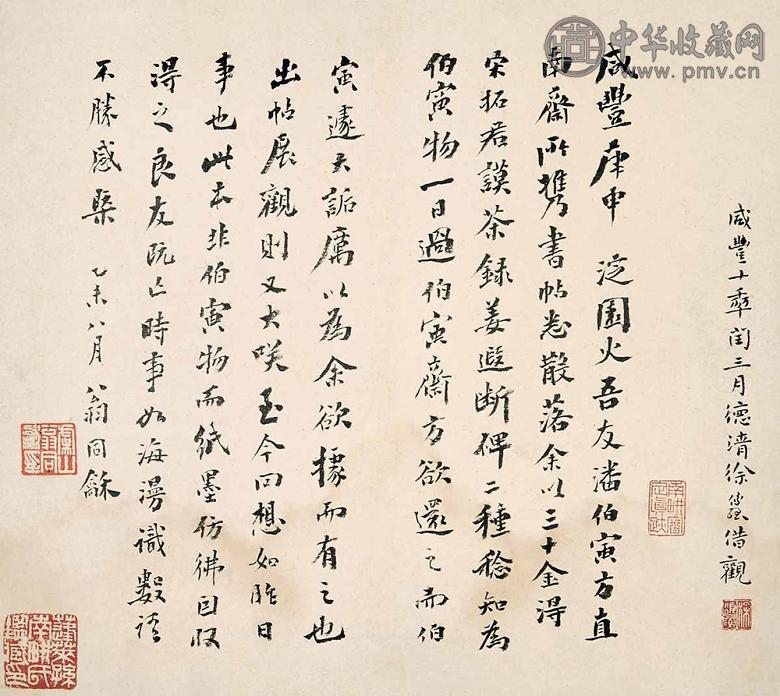 中华收藏网
www.pmv.cn
咸豐十秊閏三月德清徐借觀
咸豐庚申 淀園火吾友潘伯寅方直
南齋所攜書帖悉散落余以三十金得
宋拓君謨茶錄姜遐斷碑二種稔知為
伯寅物一日過伯寅齋方欲還之而伯
寅遽大詬厲以為余欲據而有之也
出帖展觀則又大咲至今回想如昨日
事也此本非伯寅物而紙墨仿彿因収
得之良友既亡時事如海漫識數語
不勝感槩 乙未八月翁同龢